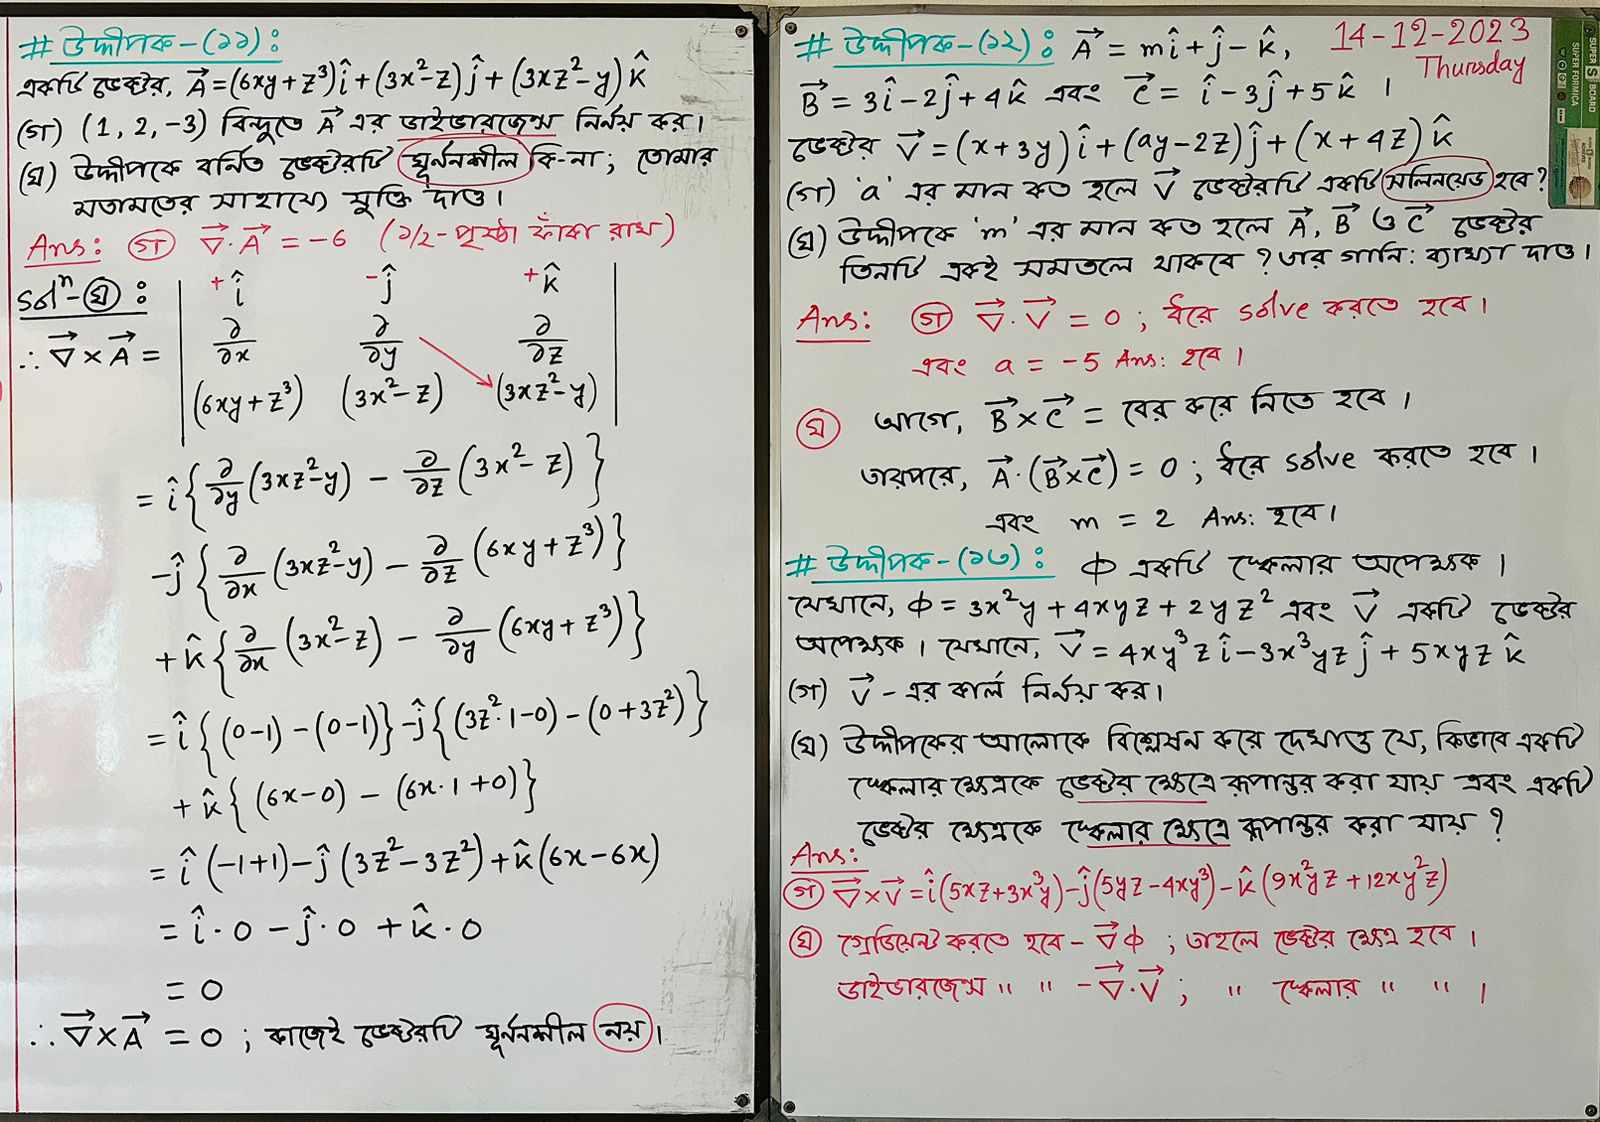 # উদ্দীপক-(১১):
একটি ভেক্টর, A⃗ = (6xy + z³)î + (3x² − z)ĵ + (3xz² − y)k̂
(গ) (1, 2, −3) বিন্দুতে A⃗ এর ডাইভারজেন্স নির্ণয় কর।
(ঘ) উদ্দীপকে বর্নিত ভেক্টরটি ঘূর্ননশীল কি-না; তোমার
মতামতের সাহায্যে যুক্তি দাও।
Ans: গ ∇⃗·A⃗ = −6 (১/২-পৃষ্ঠা ফাঁকা রাখ)
Solⁿ-ঘ: + î − ĵ + k̂
∴ ∇⃗×A⃗ = | ∂/∂x ∂/∂y ∂/∂z |
(6xy + z³) (3x² − z) (3xz² − y)
= î{∂/∂y (3xz² − y) − ∂/∂z (3x² − z)}
−ĵ{∂/∂x (3xz² − y) − ∂/∂z (6xy + z³)}
+ k̂{∂/∂x (3x² − z) − ∂/∂y (6xy + z³)}
= î{(0−1) − (0−1)} −ĵ{(3z²·1−0) − (0+3z²)}
+ k̂{(6x−0) − (6x·1+0)}
= î(−1+1) − ĵ(3z² − 3z²) + k̂(6x − 6x)
= î·0 − ĵ·0 + k̂·0
= 0
∴ ∇⃗×A⃗ = 0; কাজেই ভেক্টরটি ঘূর্ননশীল নয়।
14-12-2023
Thursday
# উদ্দীপক-(১২): A⃗ = mî + ĵ − k̂,
B⃗ = 3î − 2ĵ + 4k̂ এবং C⃗ = î − 3ĵ + 5k̂ ।
ভেক্টর V⃗ = (x + 3y)î + (ay − 2z)ĵ + (x + 4z)k̂
(গ) 'a' এর মান কত হলে V⃗ ভেক্টরটি একটি সলিনয়েড হবে?
(ঘ) উদ্দীপকে 'm' এর মান কত হলে A⃗, B⃗ ও C⃗ ভেক্টর
তিনটি একই সমতলে থাকবে? তার গানি: ব্যাখ্যা দাও।
Ans: গ ∇⃗·V⃗ = 0; ধরে solve করতে হবে।
এবং a = −5 Ans: হবে।
ঘ আগে, B⃗×C⃗ = বের করে নিতে হবে।
তারপরে, A⃗·(B⃗×C⃗) = 0; ধরে solve করতে হবে।
এবং m = 2 Ans: হবে।
# উদ্দীপক-(১৩): Φ একটি স্কেলার অপেক্ষক।
যেখানে, Φ = 3x²y + 4xyz + 2yz² এবং V⃗ একটি ভেক্টর
অপেক্ষক। যেখানে, V⃗ = 4xy³z î − 3x³yz ĵ + 5xyz k̂
(গ) V⃗ - এর কার্ল নির্নয় কর।
(ঘ) উদ্দীপকের আলোকে বিশ্লেষন করে দেখাও যে, কিভাবে একটি
স্কেলার ক্ষেত্রকে ভেক্টর ক্ষেত্রে রূপান্তর করা যায় এবং একটি
ভেক্টর ক্ষেত্রকে স্কেলার ক্ষেত্রে রূপান্তর করা যায়?
Ans:
গ ∇⃗×V⃗ = î(5xz + 3x³y) − ĵ(5yz − 4xy³) − k̂(9x²yz + 12xy²z)
ঘ গ্রেডিয়েন্ট করতে হবে - ∇⃗Φ; তাহলে ভেক্টর ক্ষেত্র হবে।
ডাইভারজেন্স " " - ∇⃗·V⃗; " স্কেলার " " ।
SUPER S BOARD
SUPER FORMICA